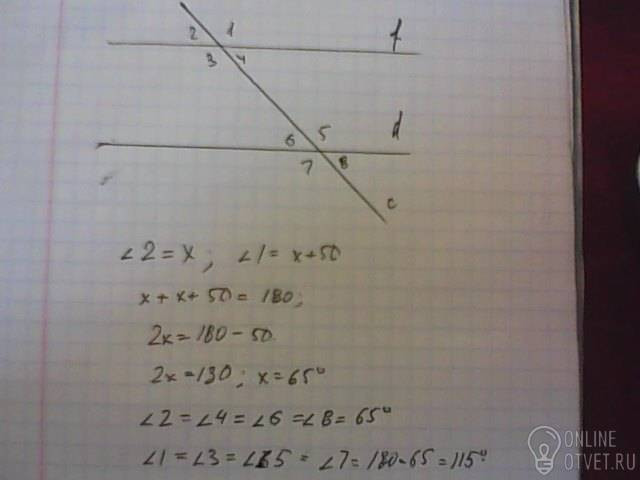 2 1 f
3 4
6 5 d
7 8
c
∠2 = x; ∠1 = x+50
x + x + 50 = 180;
2x = 180 - 50
2x = 130; x = 65°
∠2 = ∠4 = ∠6 = ∠8 = 65°
∠1 = ∠3 = ∠5 = ∠7 = 180-65 = 115°
ONLINE
OTVET.RU